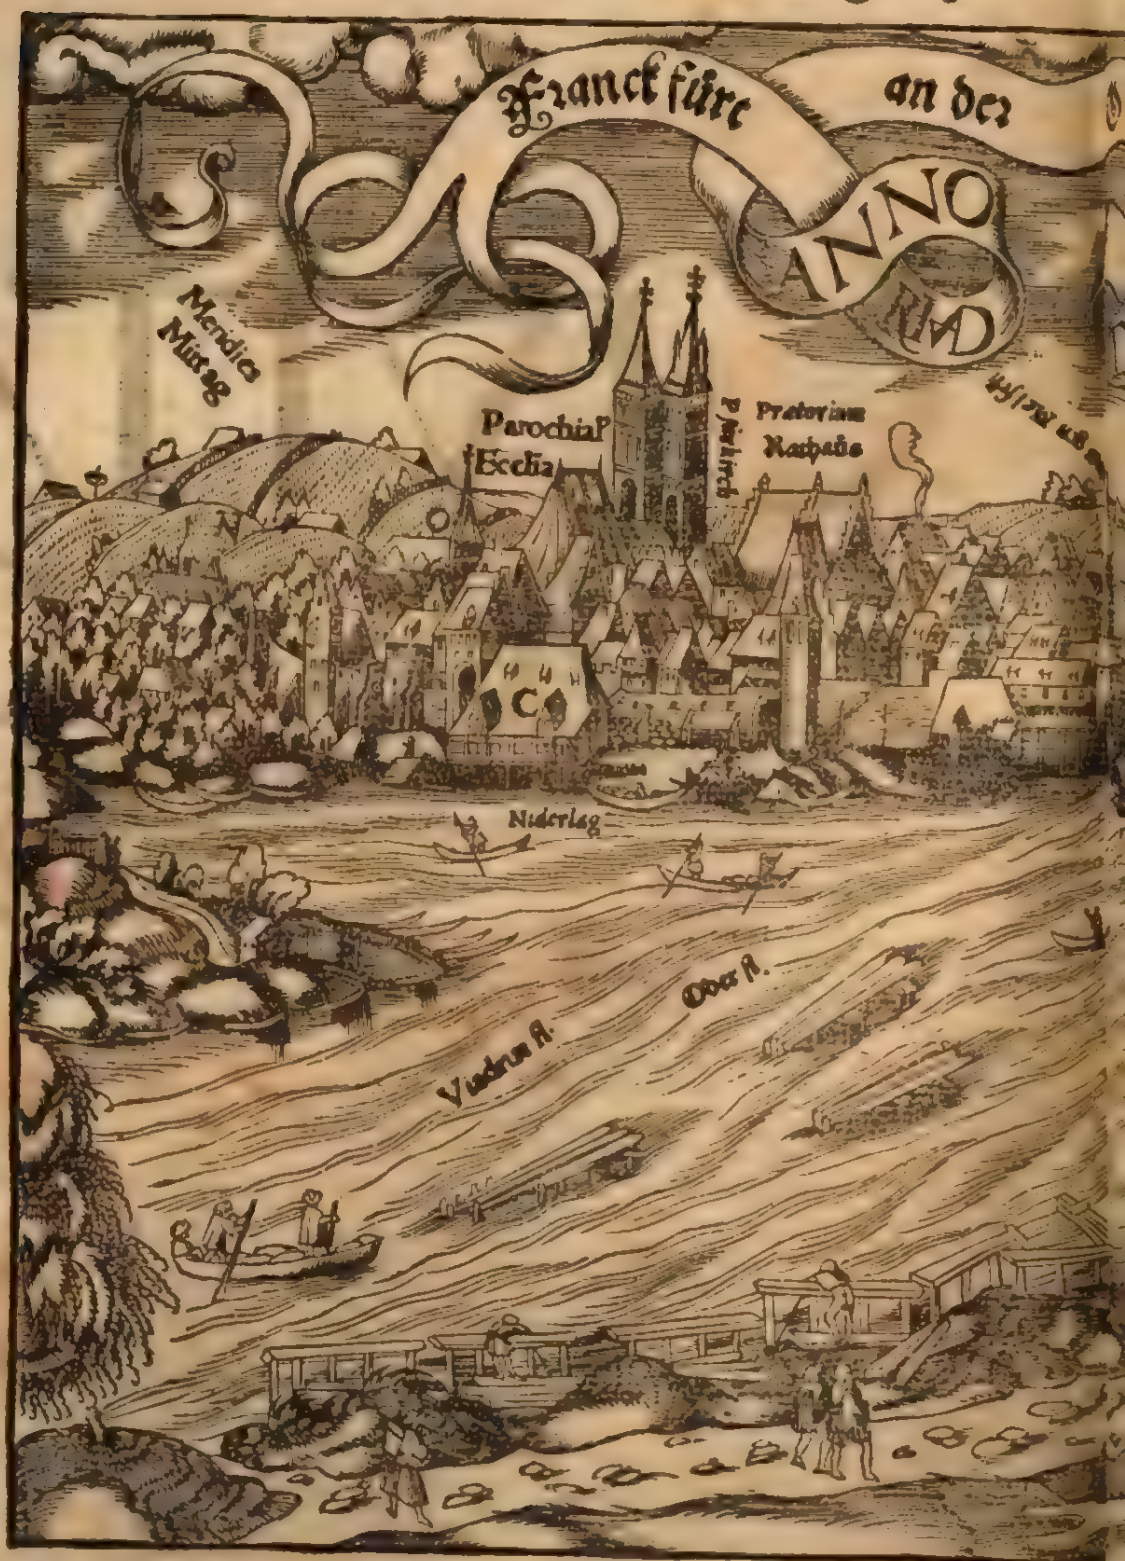 Franckfurt
an der
ANNO
Meridies
Mittag
Parochial
Ecclia
Pfarkirch
Prætorium
Rathaus
N
O
C
Niderlag
Oder fl.
Viadrus fl.